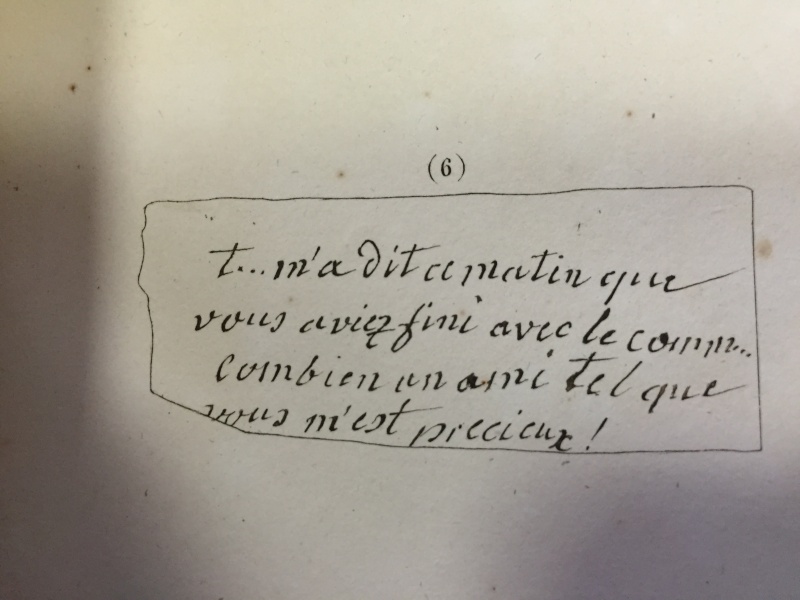 (6)
t... m'a dit ce matin que
vous aviez fini avec le comm...
Combien un ami tel que
vous m'est precieux !